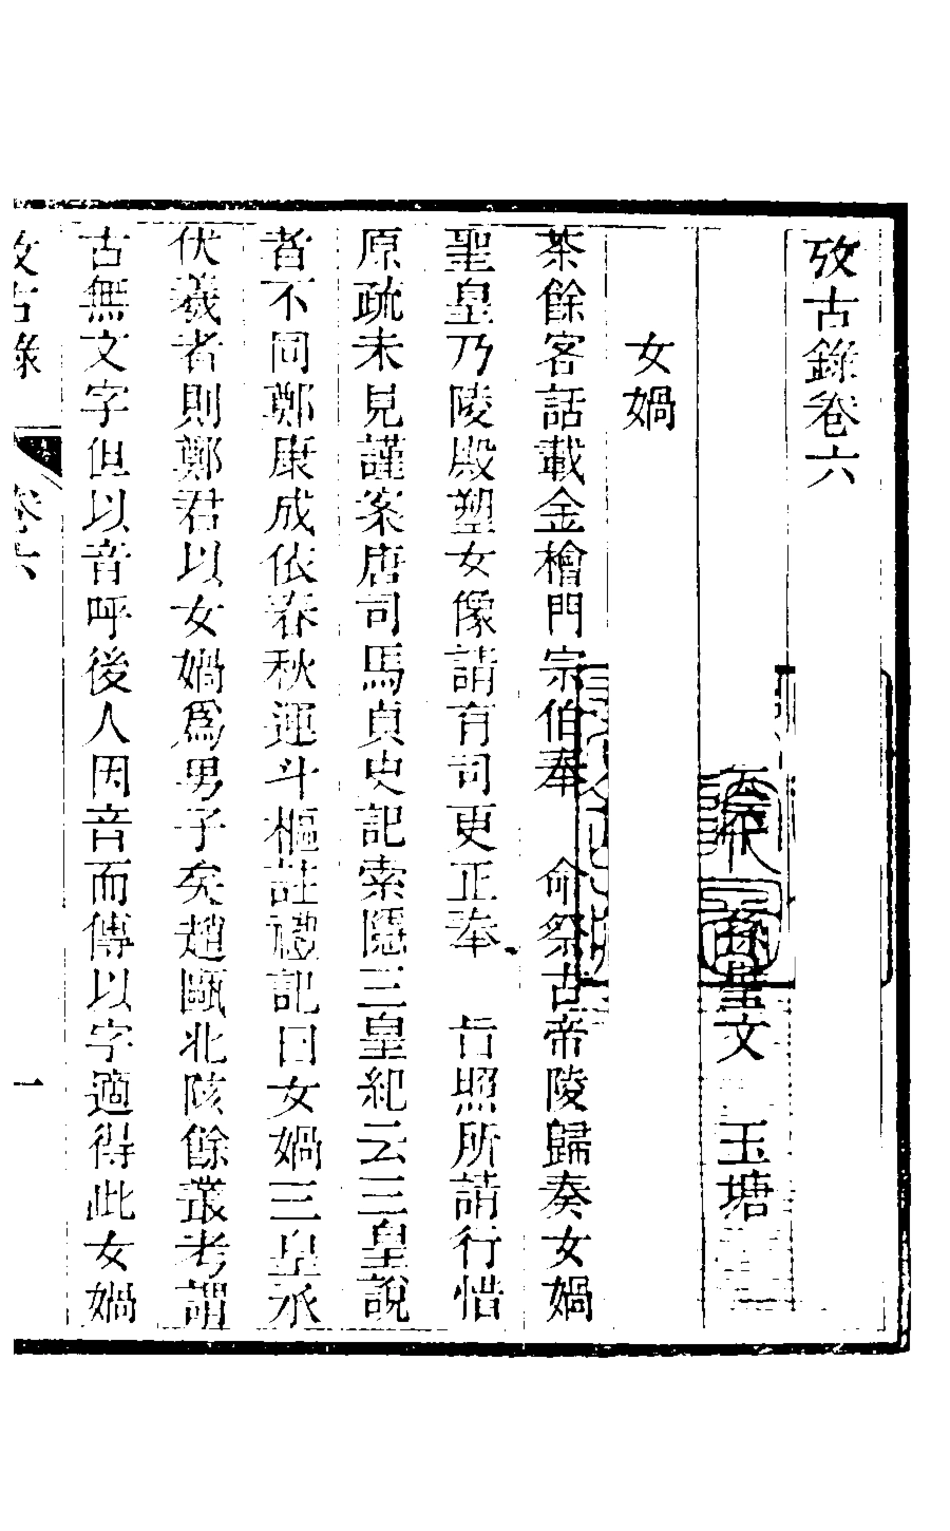 攷古錄卷六
孫星文　玉塘
女媧
茶餘客話載金檜門宗伯奉　命祭古帝陵歸奏女媧
聖皇乃陵殿塑女像請有司更正奉　旨照所請行惜
原疏未見謹案唐司馬貞史記索隱三皇紀云三皇說
者不同鄭康成依春秋運斗樞註禮記曰女媧三皇承
伏羲者則鄭君以女媧爲男子矣趙甌北陔餘叢考謂
古無文字但以音呼後人因音而傳以字適得此女媧
攷古錄　卷六　一